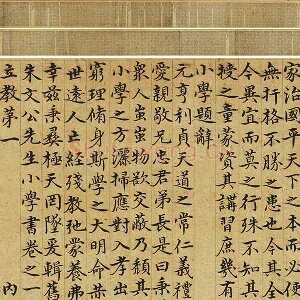 家治國平天下之本而必使
無扞格不勝之患也今其全
今異宜而莫之行殊不知其
授之童蒙資其講習庶幾有
小學題辭
元亨利貞天道之常仁義禮
愛親敬兄忠君弟長是曰秉
衆人蚩蚩物欲交蔽乃頹其
小學之方灑掃應對入孝出
窮理脩身斯學之大明命赫
世遠人亡經殘教弛蒙養弗
幸茲秉彝極天罔墜爰輯舊
朱文公先生小學書卷之一
立教第一 內